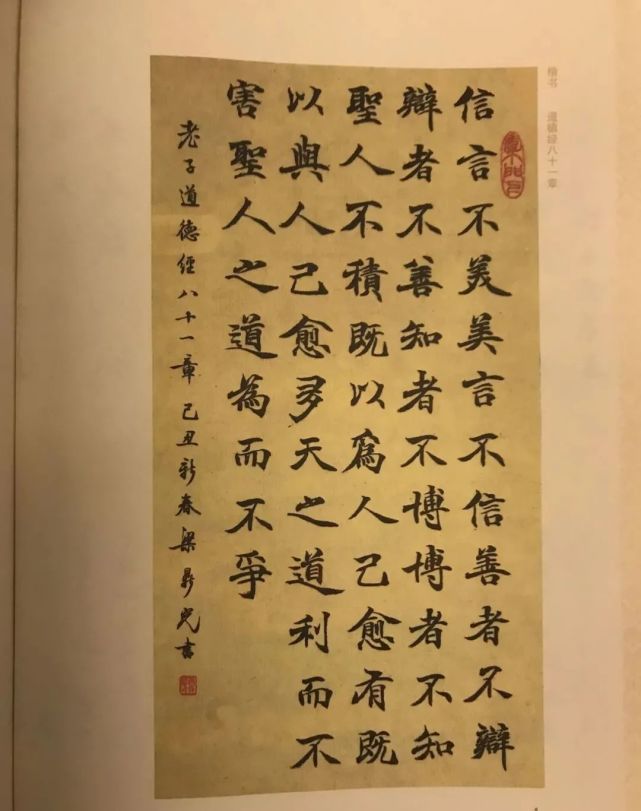 楷书 道德经八十一章
信言不美美言不信善者不辯
辯者不善知者不博博者不知
聖人不積既以爲人己愈有既
以與人己愈多天之道利而不
害聖人之道為而不爭
老子道德經八十一章 己丑新春梁鼎光書